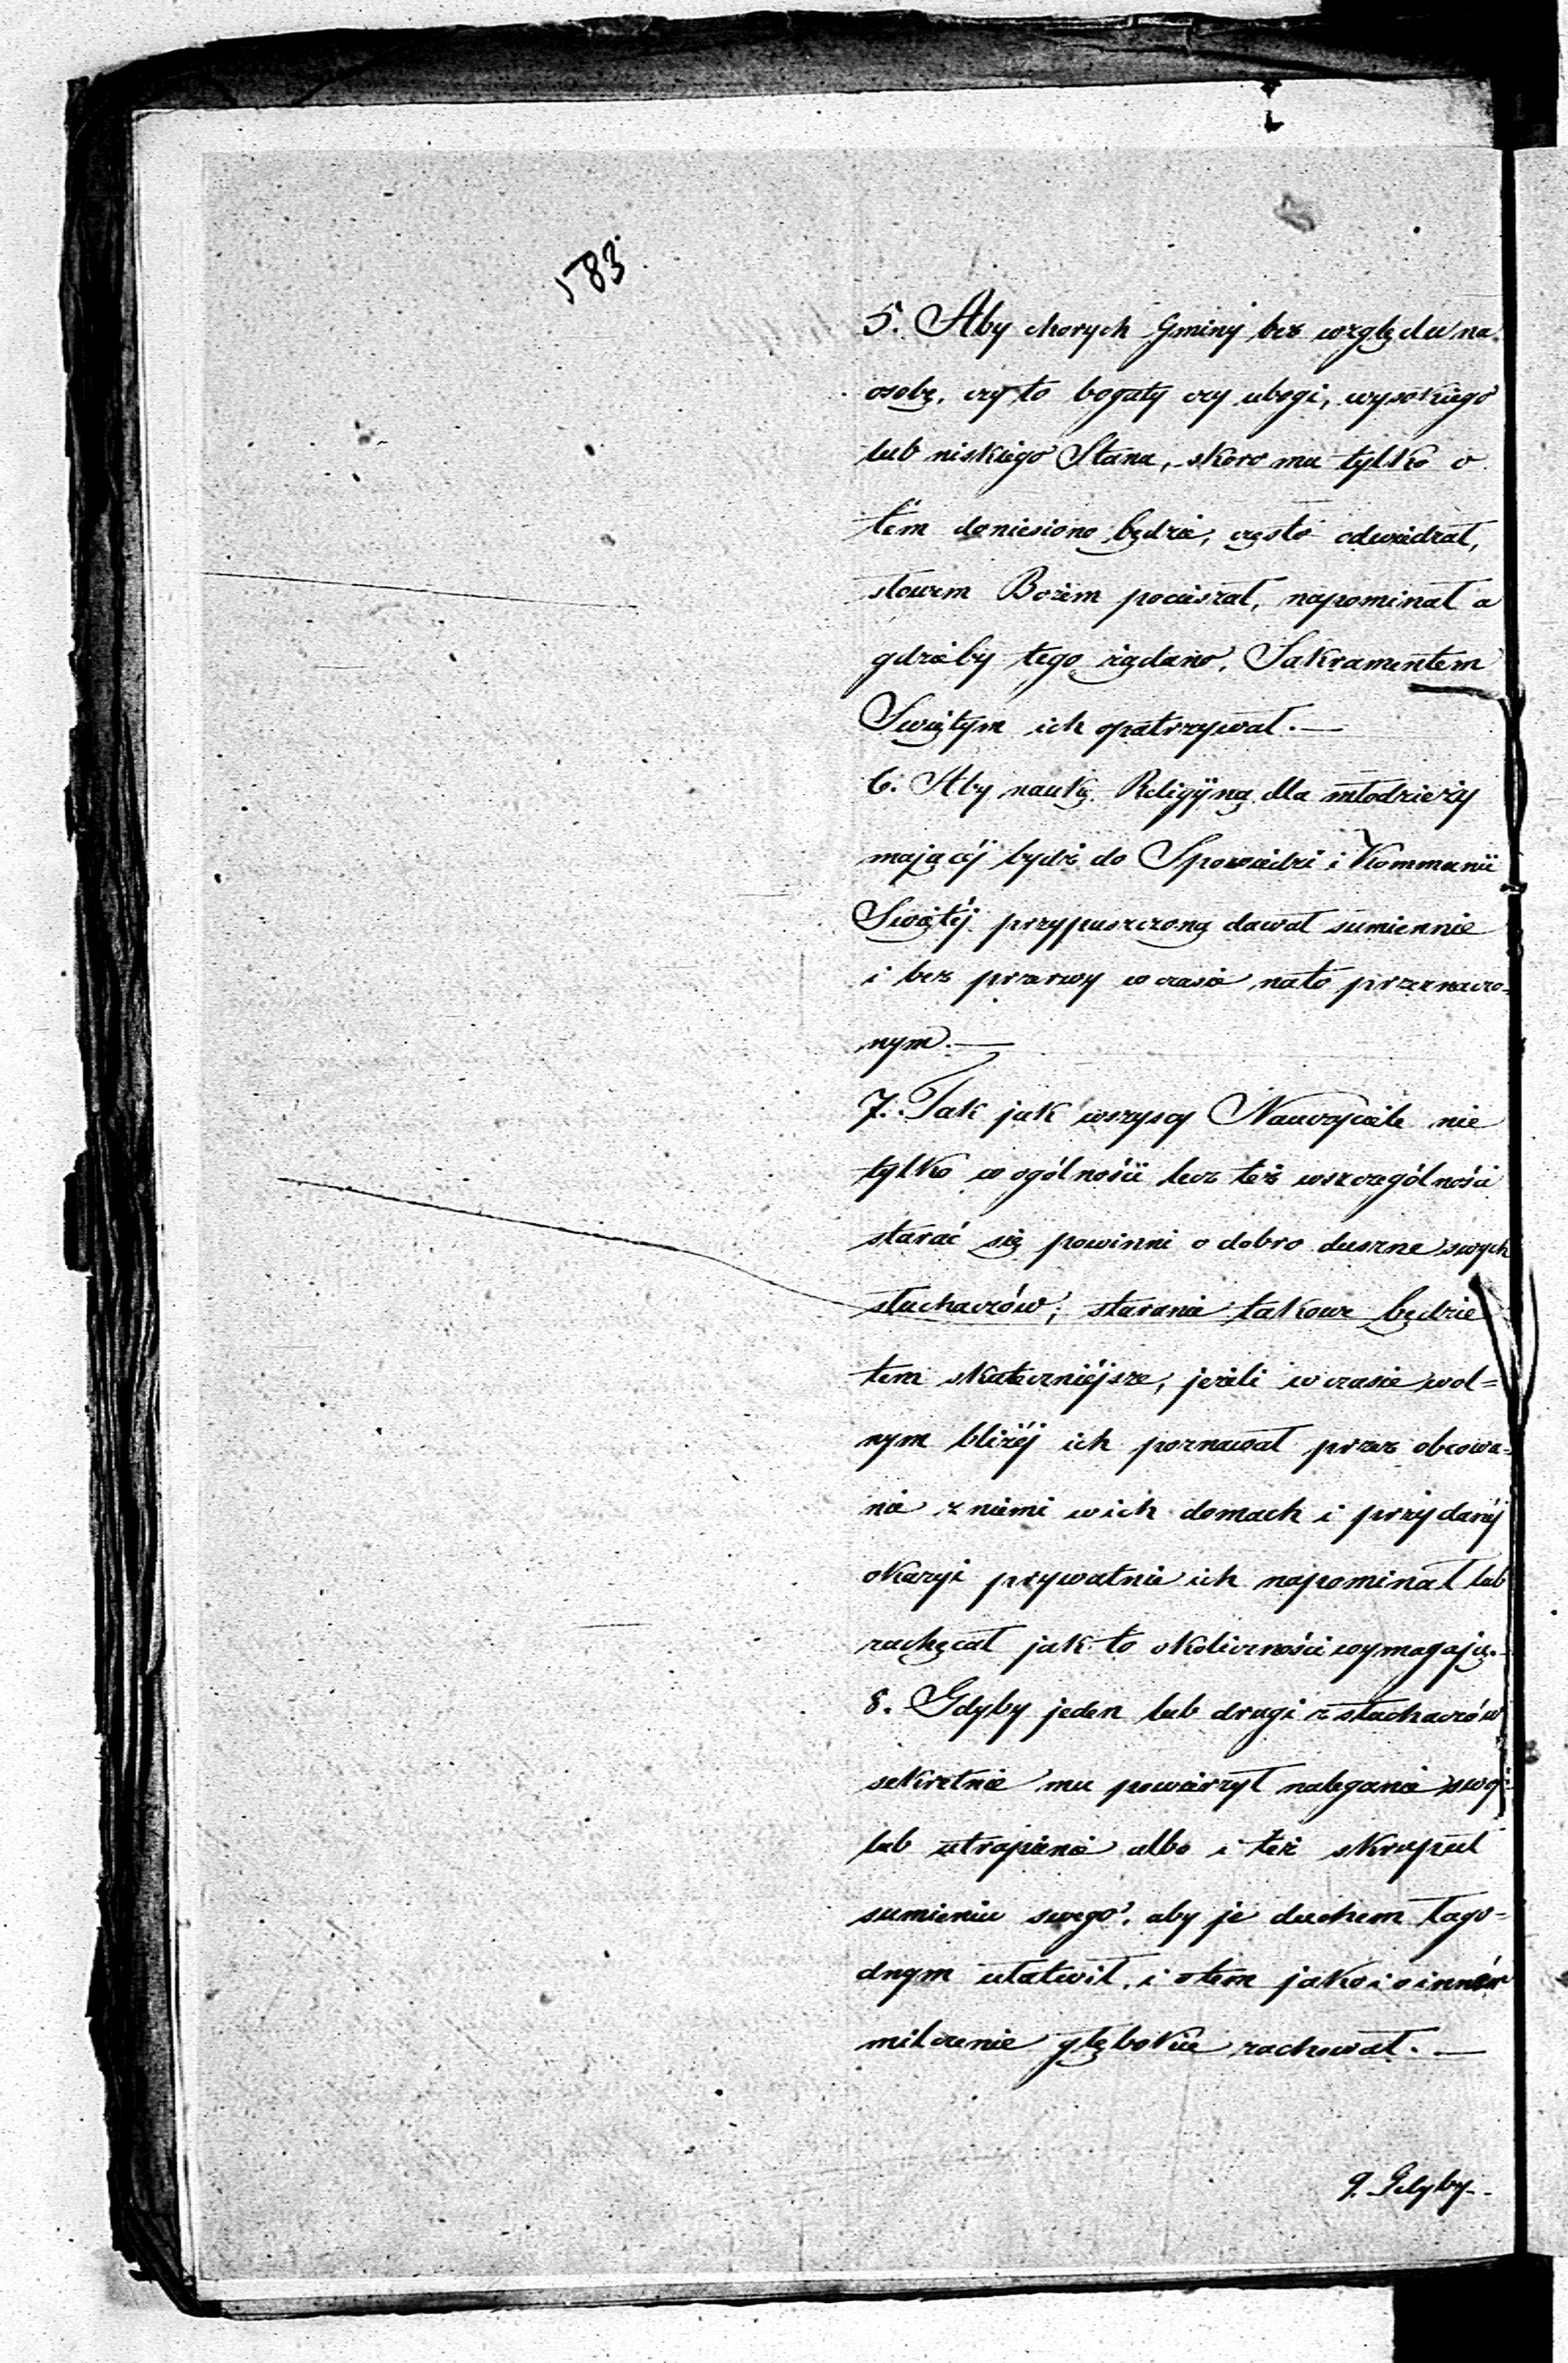 583.
5. Aby chorych Gminy bez względu na
osobę, czy to bogaty czy ubogi, wysokiego
lub niskiego Stanu, skoro mu tylko o
tém doniesiono będzie, często odwiedzał,
słowem Bożem pocieszał, napominał a
gdzieby tego żądano, Sakramentem
Swiętym ich opatrzywał. —
6. Aby naukę Religijną dla młodzieży
mającéj bydź do Spowiedzi i Kommunii
Swiętéj przypuszczoną dawał sumiennie
i bez przerwy w czasie nato przeznaczo-
nym. —
7. Tak jak wszyscy Nauczyciele nie
tylko w ogólności lecz też wszczególności
starać się powinni o dobro duszne swych
słuchaczów; staranie takowe będzie
tem skuteczniéjsze, jeżeli w czasie wol=
nym bliżéj ich poznawał przez obcowa-
nie z niemi w ich domach i przy danéj
okazyi prywatnie ich napominał lub
zachęcał jak to okoliczności wymagają. -
8. Gdyby jeden lub drugi z słuchaczów
sekretnie mu powierzył nalegania
lub utrapienie albo i też skrupuł
sumieniu swego, aby je duchem łago=
dnym ułatwił, i o tem jako i o
milczenie głębokie zachował. —
9. Gdyby-